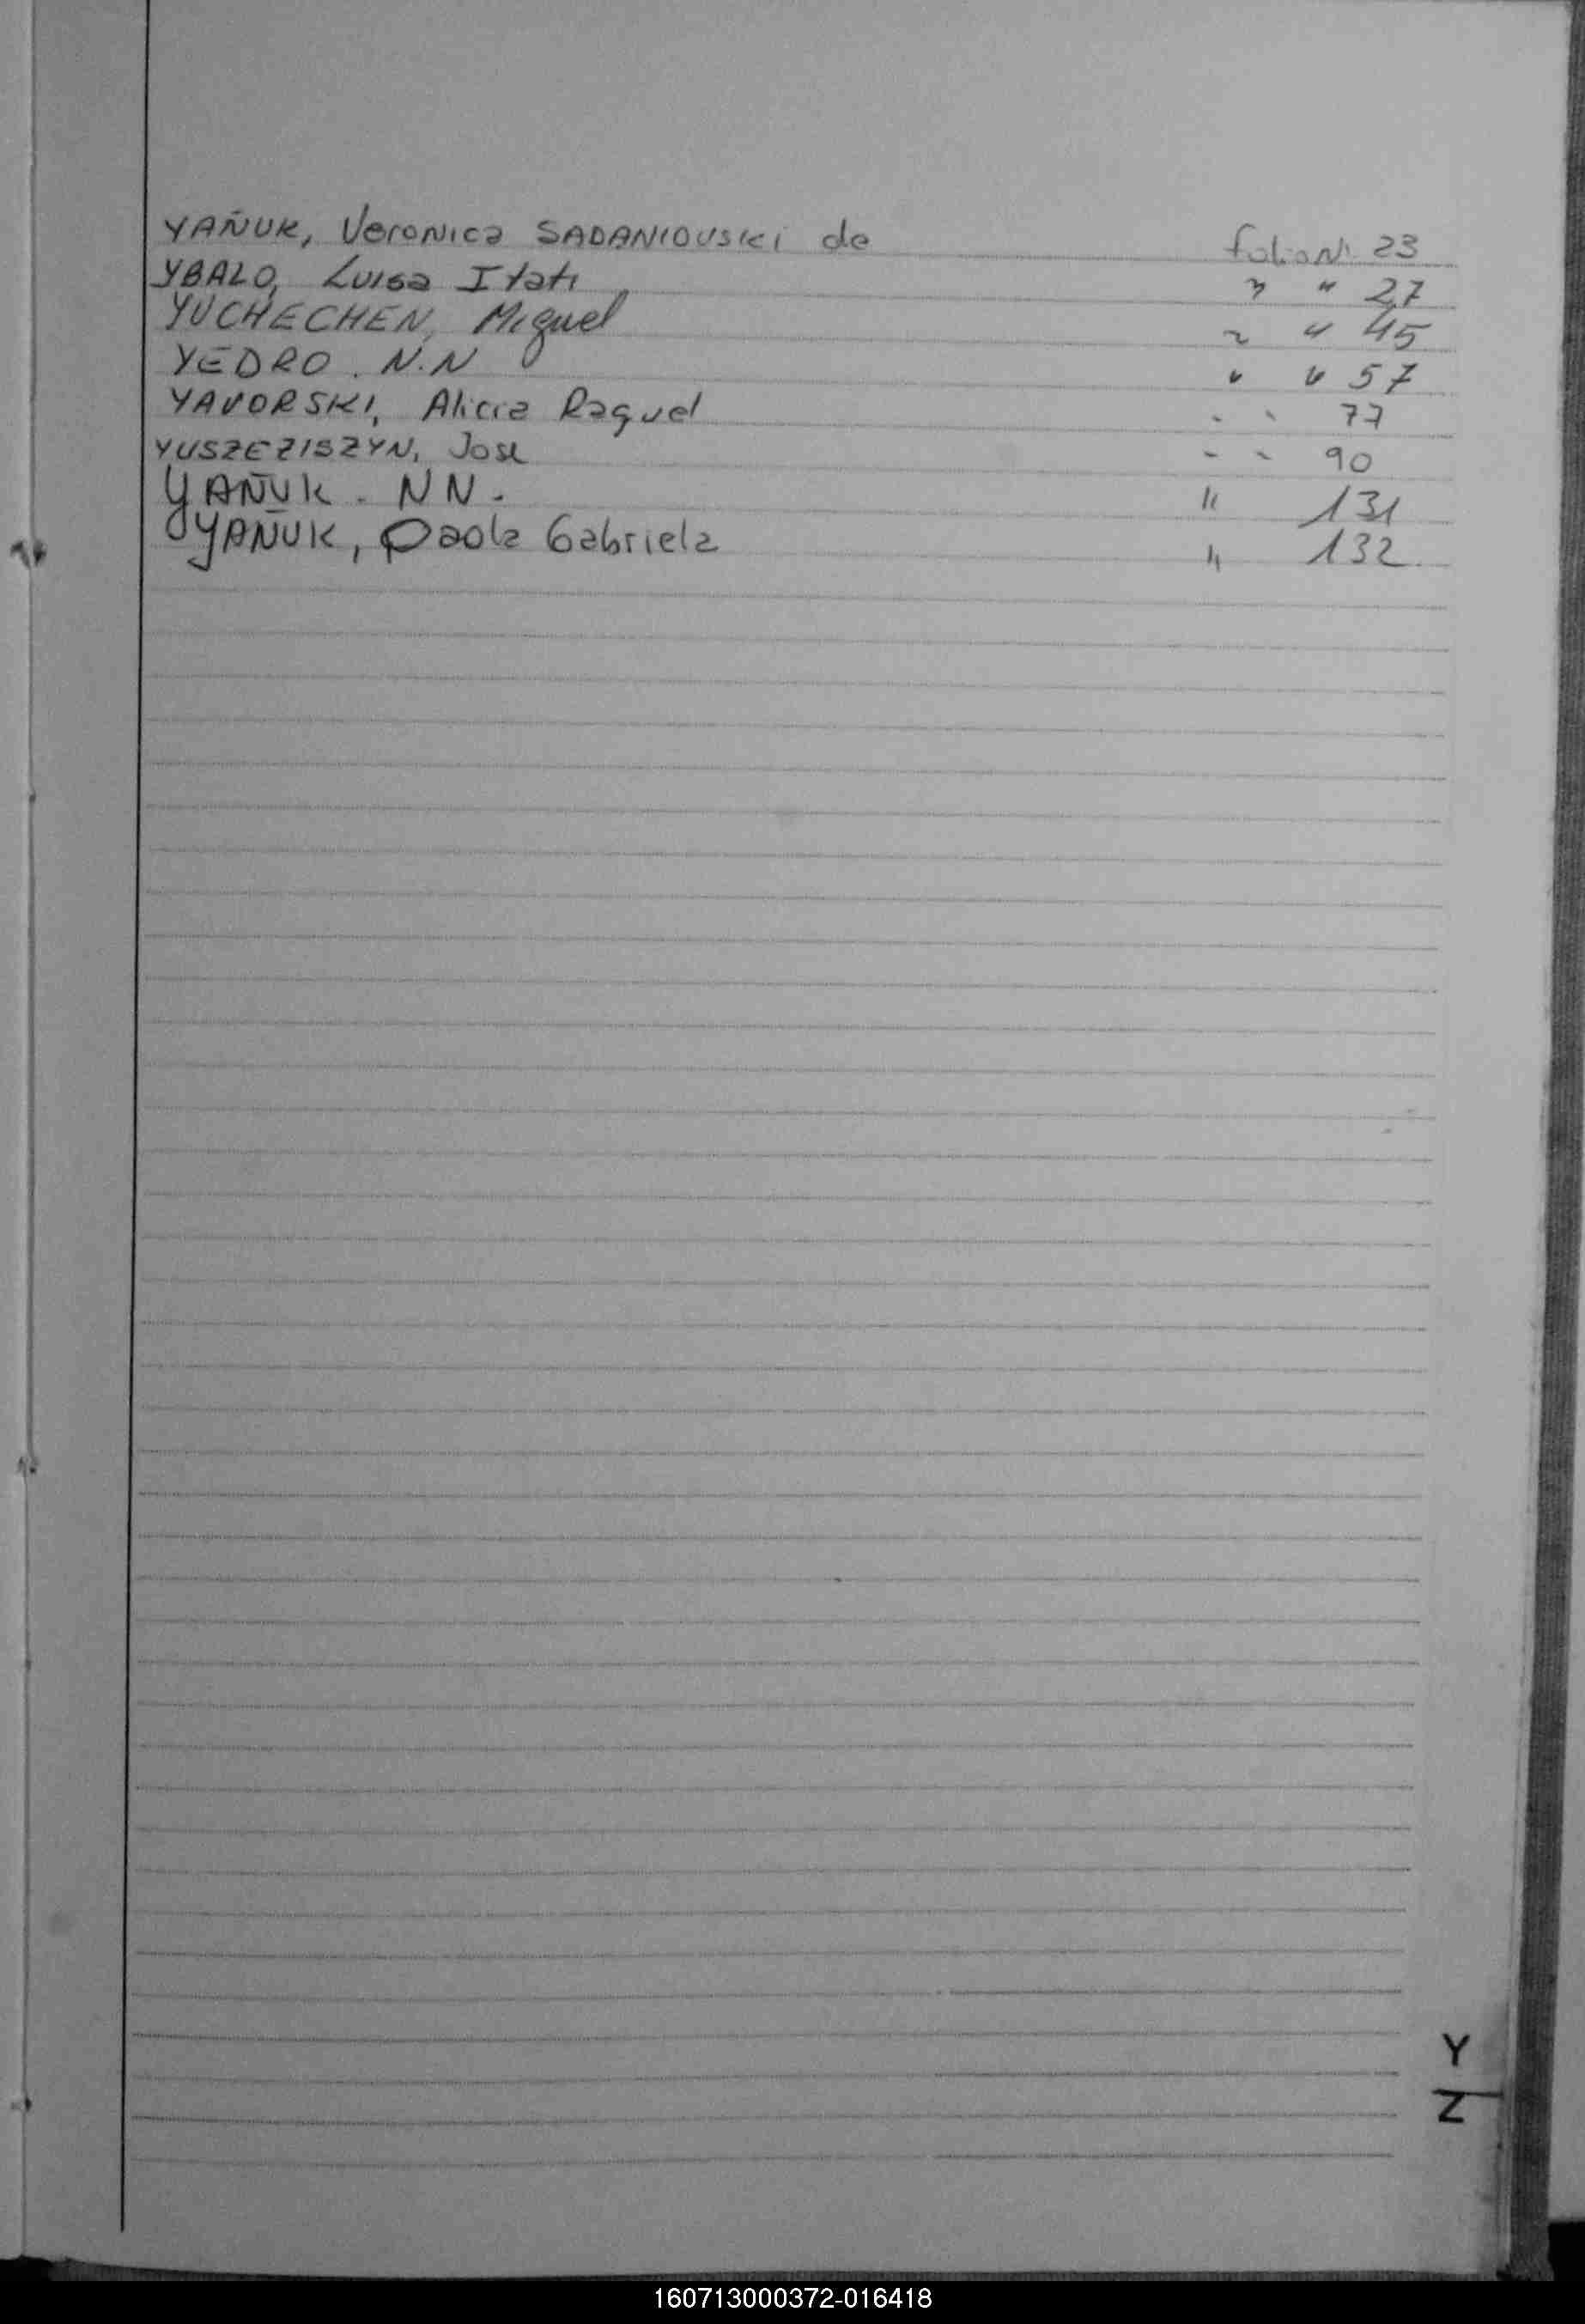 YAÑUK, Veronica SADANIOUSKI de folio Nº 23
YBALO, Luisa Itati " " 27
YUCHECHEN, Miguel " " 45
YEDRO. N.N " " 57
YAVORSKI, Alicia Raquel " " 77
YUSZEZISZYN, Jose " " 90
YAÑUK. NN. " 131
YAÑUK, Paola Gabriela " 132
Y
Z
160713000372-016418